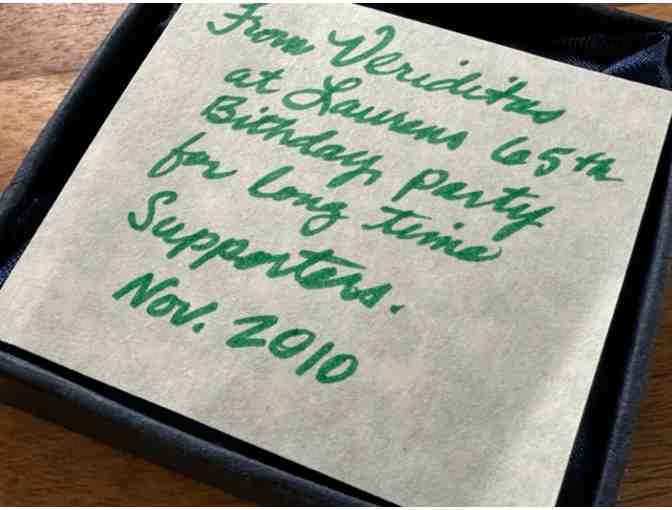 From Veriditas
at Laurens 65th
Birthday party
for long time
Supporters.
Nov. 2010